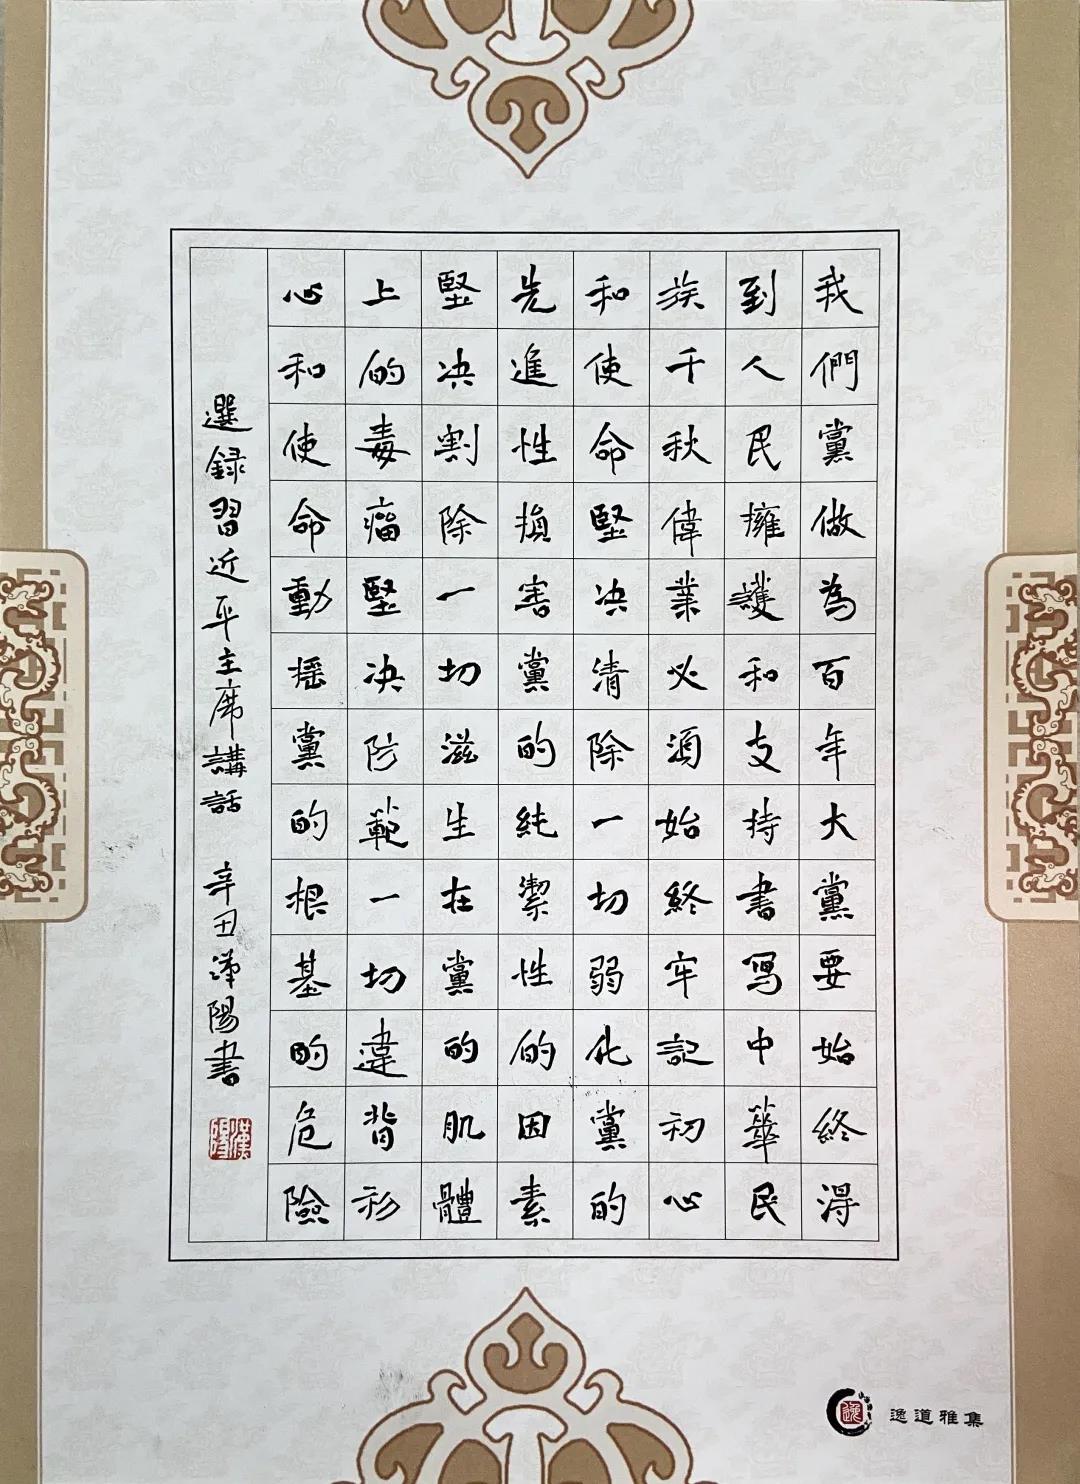 我們黨做為百年大黨要始終得
到人民擁護和支持書寫中華民
族千秋偉業必須始終牢記初心
和使命堅决清除一切弱化黨的
先進性損害黨的純潔性的因素
堅决割除一切滋生在黨的肌體
上的毒瘤堅决防範一切違背初
心和使命動摇黨的根基的危險
選録習近平主席講話 辛丑漢陽書
漢陽
逸
逸道雅集